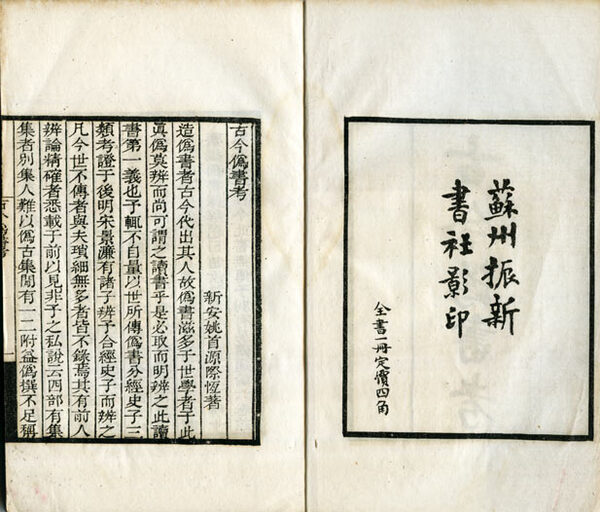 蘇州振新
書社影印
全書一冊定價四角
古今僞書考
新安姚首源際恆著
造僞書者古今代出其人故僞書滋多于世學者于此
眞僞莫辨而尚可謂之讀書乎是必取而明辨之此讀
書第一義也予輒不自量以世所傳僞書分經史子三
類考證于後明宋景濂有諸子辨予合經史子而辨之
凡今世不傳者與夫瑣細無多者皆不錄焉其有前人
辨論精確者悉載于前以見非予之私說云四部有集
集者別集人難以僞古集閒有一二附益僞撰不足稱